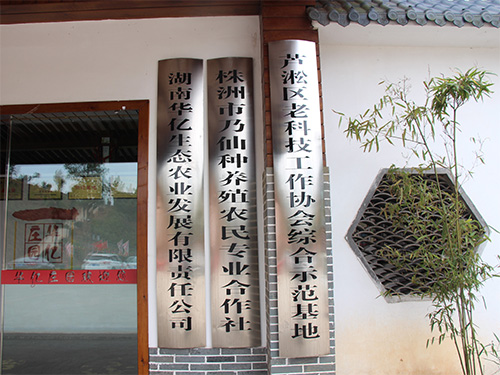 湖南华亿生态农业发展有限责任公司
株洲市乃仙种养殖农民专业合作社
芦淞区老科技工作协会综合示范基地